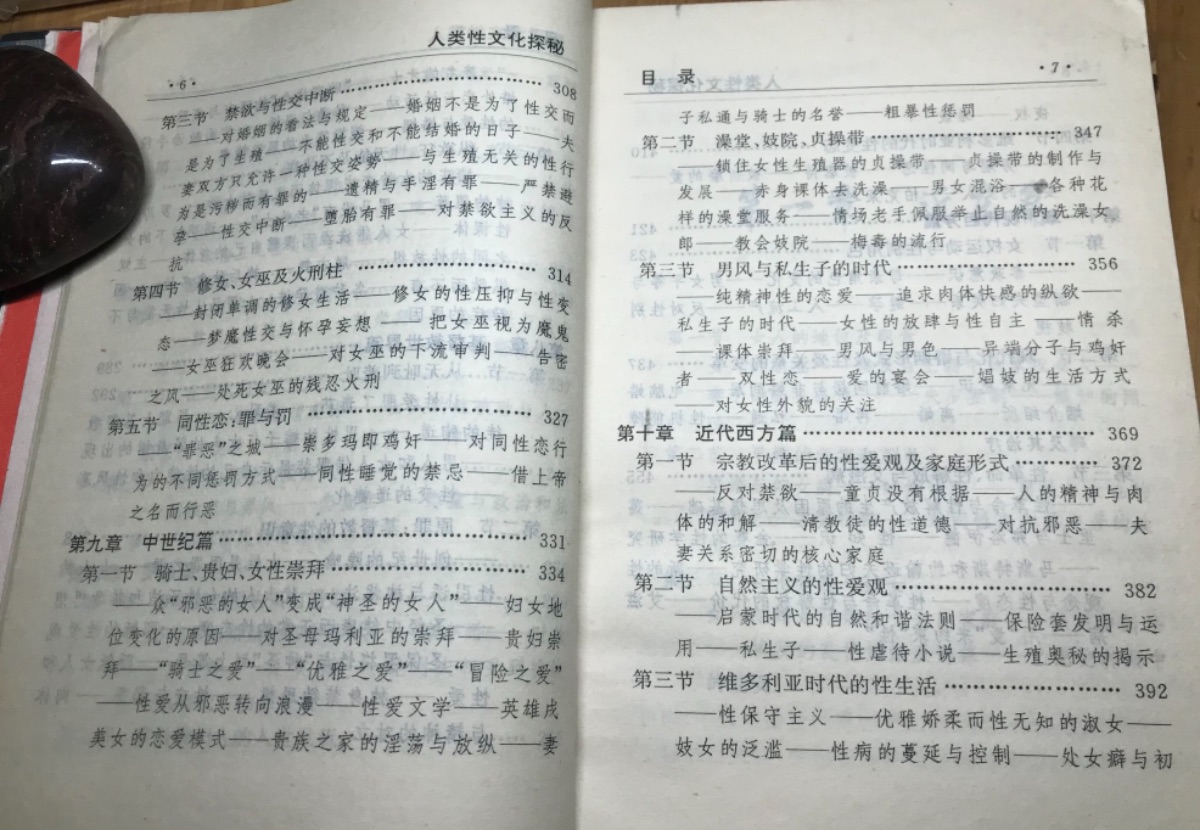 人类性文化探秘
·6·
第三节 禁欲与性交中断……………………308
——对婚姻的看法与规定——婚姻不是为了性交而
是为了生殖——不能性交和不能结婚的日子——夫
妻双方只允许一种性交姿势——与生殖无关的性行
为是污秽而有罪的——遗精与手淫有罪——严禁避
孕——性交中断——堕胎有罪——对禁欲主义的反
抗
第四节 修女、女巫及火刑柱……………………314
——封闭单调的修女生活——修女的性压抑与性变
态——梦魔性交与怀孕妄想——把女巫视为魔鬼
——女巫狂欢晚会——对女巫的下流审判——告密
之风——处死女巫的残忍火刑
第五节 同性恋:罪与罚……………………327
——“罪恶”之城——崇多玛即鸡奸——对同性恋行
为的不同惩罚方式——同性睡觉的禁忌——借上帝
之名而行恶
第九章 中世纪篇……………………331
第一节 骑士、贵妇、女性崇拜……………………334
——众“邪恶的女人”变成“神圣的女人”——妇女地
位变化的原因——对圣母玛利亚的崇拜——贵妇崇
拜——“骑士之爱”——“优雅之爱”——“冒险之爱”
——性爱从邪恶转向浪漫——性爱文学——英雄戌
美女的恋爱模式——贵族之家的淫荡与放纵——妻
目 录
·7·
子私通与骑士的名誉——粗暴性惩罚
第二节 澡堂、妓院、贞操带……………………347
——锁住女性生殖器的贞操带——贞操带的制作与
发展——赤身裸体去洗澡——男女混浴——各种花
样的澡堂服务——情场老手佩服举止自然的洗澡女
郎——教会妓院——梅毒的流行
第三节 男风与私生子的时代……………………356
——纯精神性的恋爱——追求肉体快感的纵欲——
私生子的时代——女性的放肆与性自主——情杀
——裸体崇拜——男风与男色——异端分子与鸡奸
者——双性恋——爱的宴会——娼妓的生活方式
——对女性外貌的关注
第十章 近代西方篇……………………369
第一节 宗教改革后的性爱观及家庭形式…………372
——反对禁欲——童贞没有根据——人的精神与肉
体的和解——清教徒的性道德——对抗邪恶——夫
妻关系密切的核心家庭
第二节 自然主义的性爱观……………………382
——启蒙时代的自然和谐法则——保险套发明与运
用——私生子——性虐待小说——生殖奥秘的揭示
第三节 维多利亚时代的性生活……………………392
——性保守主义——优雅娇柔而性无知的淑女——
妓女的泛滥——性病的蔓延与控制——处女癖与初